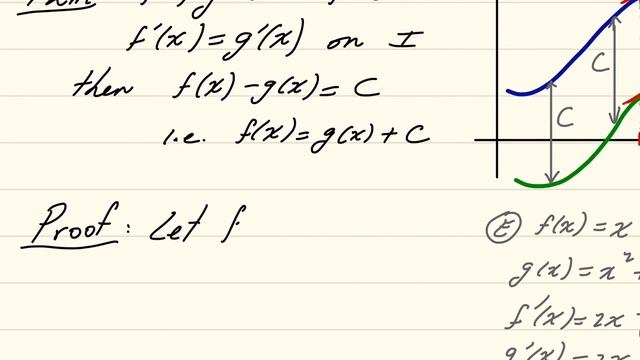 f'(x) = g'(x) on I
then f(x) - g(x) = C
i.e. f(x) = g(x) + C
Proof: Let f
C
C
Ⓔ f(x) = x
g(x) = x²
f'(x) = 2x
g'(x) = 2x